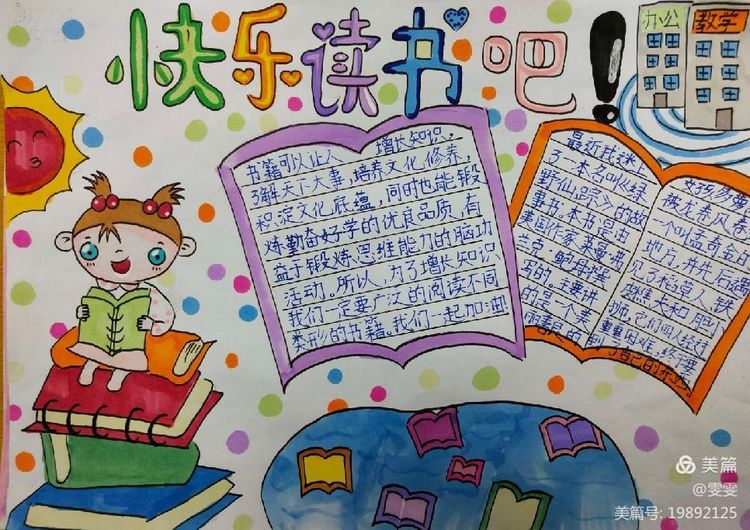 快乐读书吧！
办公
教学
书籍可以让人 增长知识，
了解天下大事，培养文化修养，
积淀文化底蕴，同时也能锻
炼勤奋好学的优良品质，有
益于锻炼思维能力的脑功
活动。所以，为了增长知识
我们一定要广泛的阅读不同
类形的书籍。我们一起加油
最近我迷上
了一本名叫《绿
野仙踪》的故
事书，本书是由
美国作家莱曼·弗
兰克·鲍姆撰
写的。主要讲
的是一个美
丽善良的
女孩多萝
被龙卷风卷
一个叫孟奇金的
地方，并先后遇
见了稻草人、铁
皮樵夫和胆小
狮，它们四人经过
重重困难，终于要
了自己的
美篇
@雯雯
美篇号: 19892125